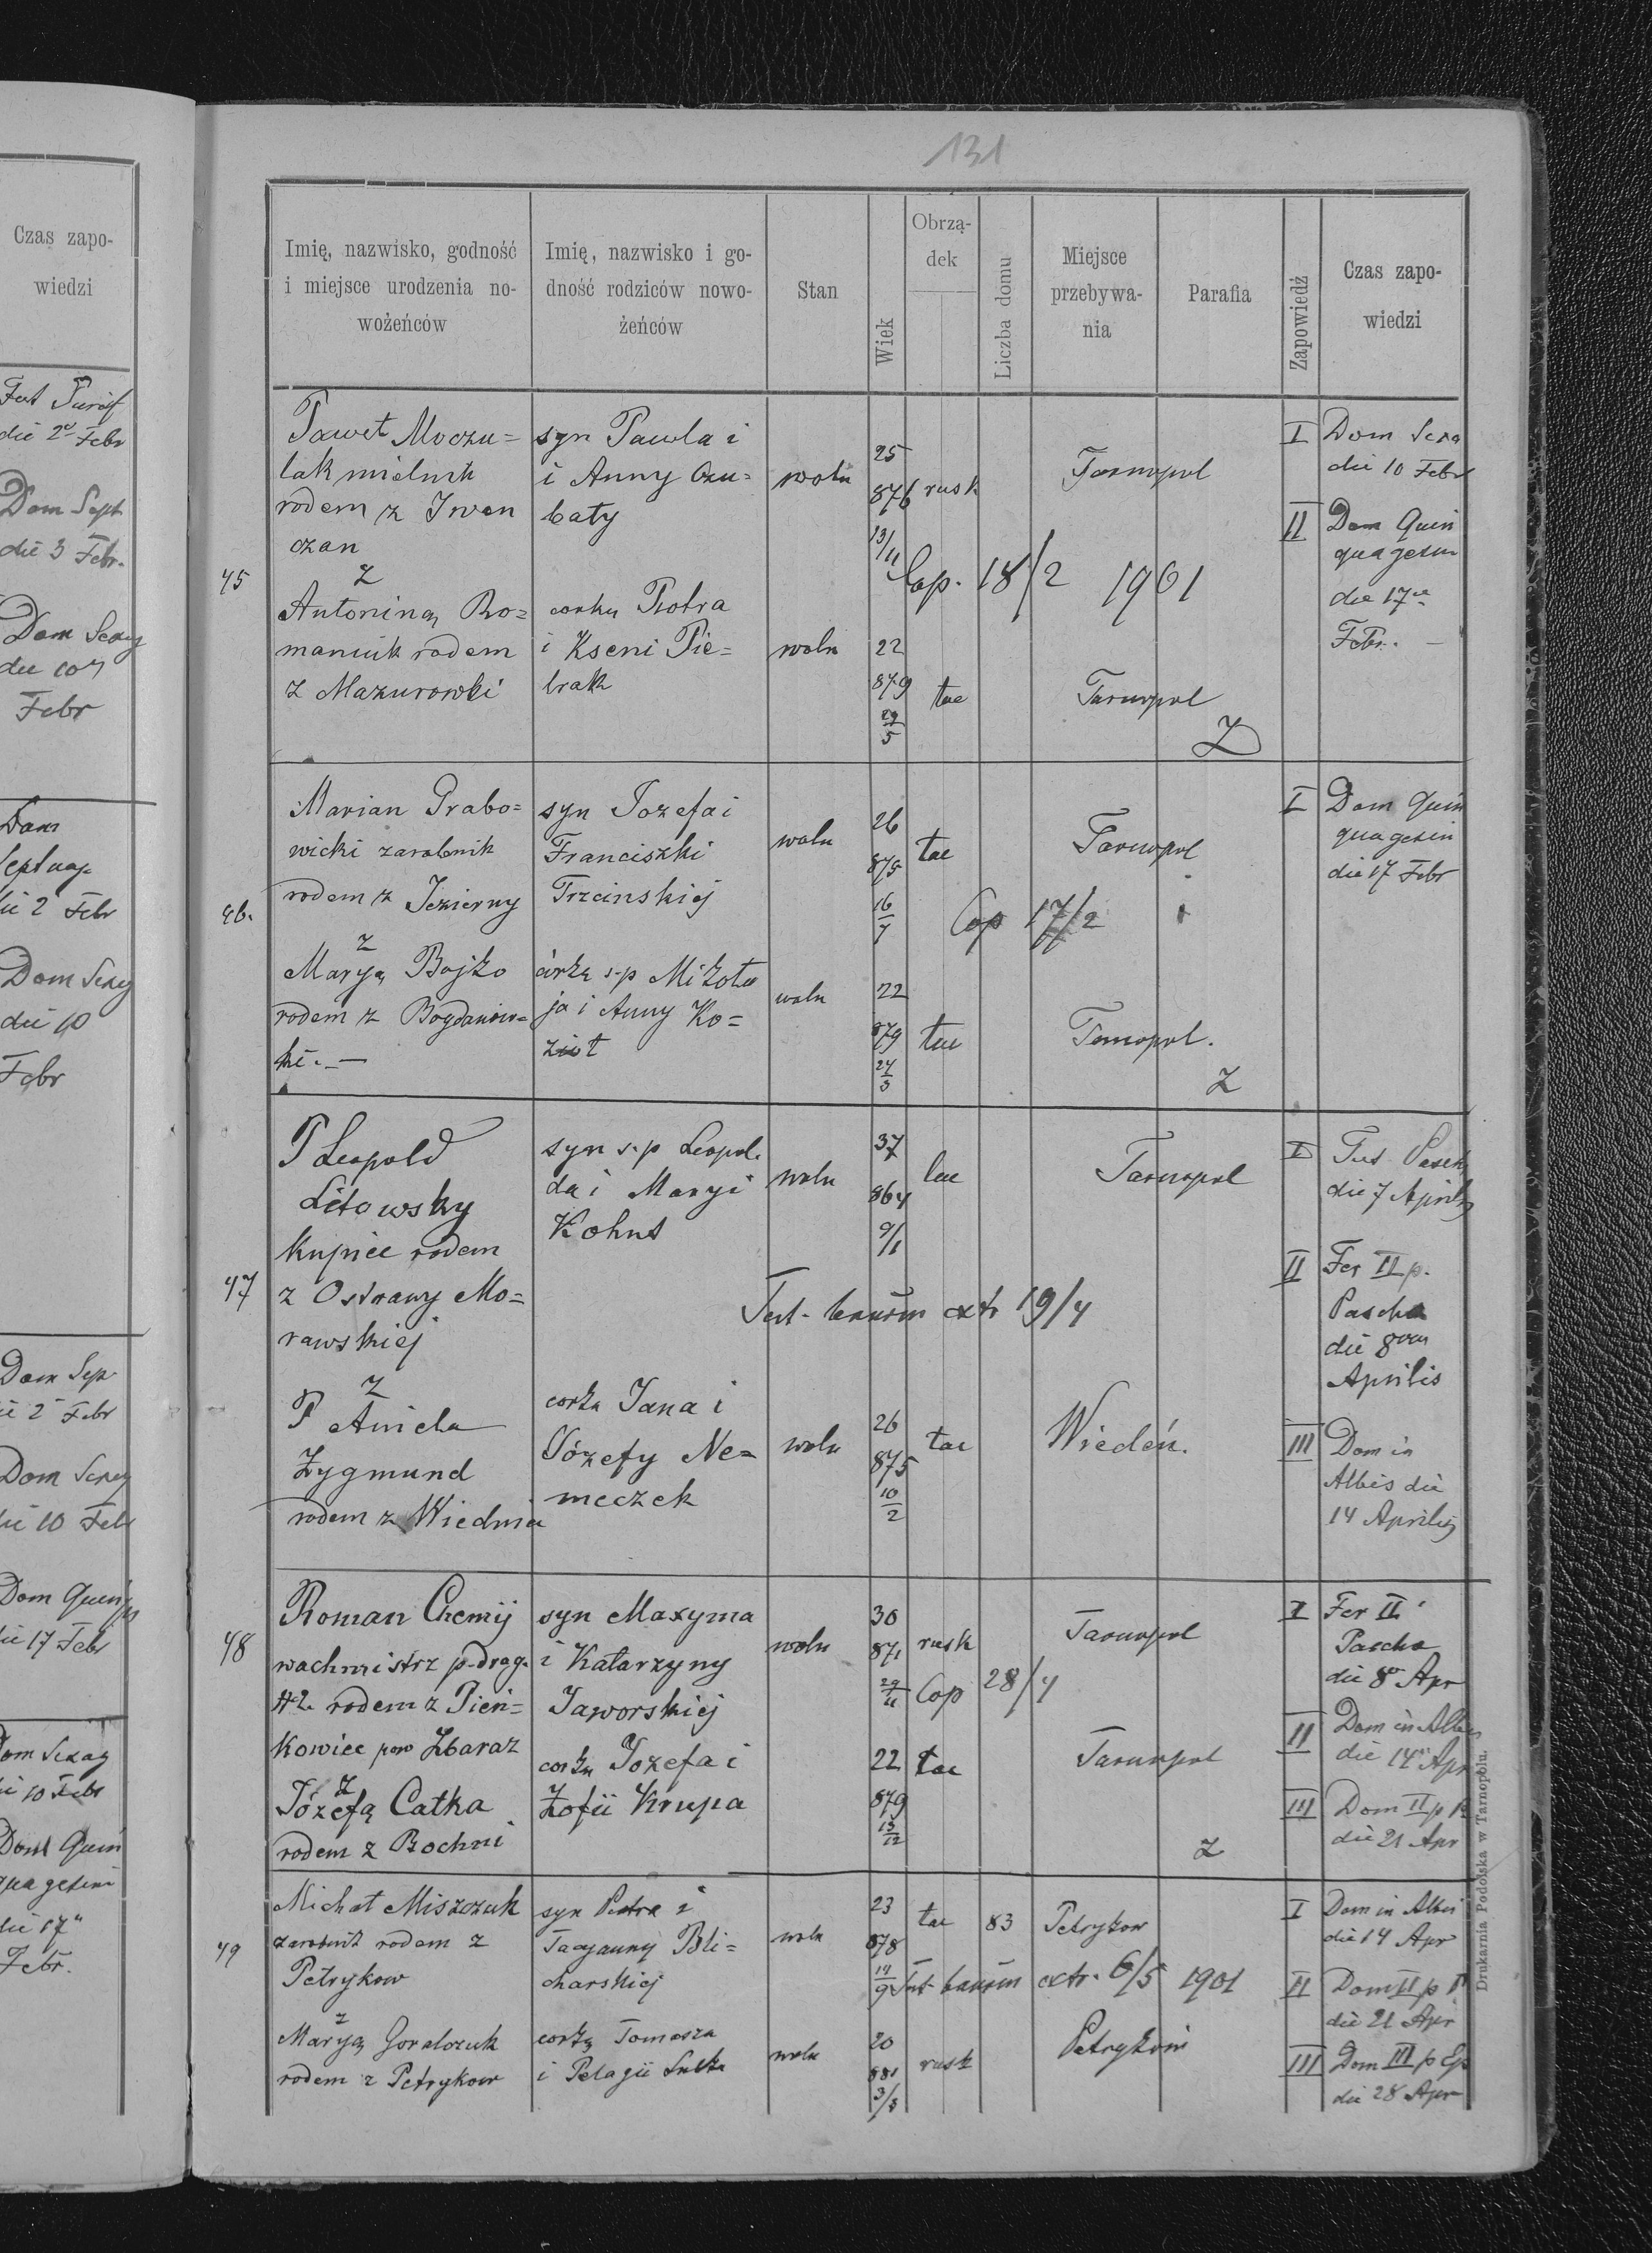 131
Czas zapo-
wiedzi
die 2 Febr
Dom Sept
die 3 Febr.
Dom Sexag
die 10
Febr
Dom
Septuag
die 2 Febr
Dom Sexag
die 10
Febr
Dom Sep
die 2 Febr
Dom Sexag
die 10 Febr
Dom Quinq
die 17 Febr
Dom Sexag
die 10 Febr
Dom Quin
quagesim
die 17
Febr.
Imię, nazwisko, godność
i miejsce urodzenia no-
wożeńców
Imię, nazwisko i go-
dność rodziców nowo-
żeńców
Stan
Wiek
Obrzą-
dek
Liczba domu
Miejsce
przebywa-
nia
Parafia
Zapowiedź
Czas zapo-
wiedzi
45
Paweł Moczu=
lak mielnik
rodem z Iwan
czan
z
Antoniną Ro=
maniuk rodem
z Mazurowki
syn Pawla i
i Anny Czu=
baty
corka Piotra
i Kseni Pie=
brak
woln
woln
25
876
13/11
22
879
29/5
rusk
łac
Cop. 18/2 1901
Tarnopol
Tarnopol
Z
I Dom Sexa
die 10 Febr
II Dom Quin
quagesim
die 17
Febr. —
46.
Marian Grabo=
wicki zarobnik
rodem z Jezierny
z
Maryą Bojko
rodem z Bogdanow=
ki. —
syn Jozefa i
Franciszki
Trzcinskiej
córką s.p Mikoła
ja i Anny Ko=
zioł
woln
woln
26
875
16/7
22
879
24/3
łac
łac
Cop 17/2
Tarnopol
Tarnopol.
Z
I Dom Quin
quagesim
die 17 Febr
47
P Leopold
Litowsky
Kupiec rodem
z Ostrawy Mo=
rawskiej
z
P Aniela
Zygmund
rodem z Wiednia
syn s.p Leopol.
da i Maryi
Kohut
corka Jana i
Józefy Ne=
meczek
woln
woln
37
864
9/1
26
875
10/2
łac
łac
Test. bannōm extr 19/4
Tarnopol
Wiedeń.
I Fest Pasch
die 7 Aprilis
II Fer II p.
Pascha
die 8va
Aprilis
III Dom in
Albis die
14 Aprilis
48
Roman Chemij
wachmistrz p. drag.
rodem z Pień=
kowiec pow Zbaraz
z
Józefą Catka
rodem z Bochni
syn Maxyma
i Katarzyny
Jaworskiej
corka Jozefa i
Zofii Krupa
woln
30
871
22
879
13/12
rusk
łac
Cop 28/4
Tarnopol
Tarnopol
Z
I Fer II
Pascha
die 8 Apr
II Dom in Albis
die 14 Apr
III Dom II p
die 21 Apr
49
Michał Miszczuk
zarobnik rodem z
Petrykow
z
Maryą Goralczuk
rodem z Petrykow
syn Piotra i
Tacyanny Bli=
charskiej
corką Tomasza
i Pelagii
woln
woln
23
878
14/9
20
881
3/8
łac
rusk
83
Test. bannōm extr. 6/5 1901
Petrykow
Petryków
I Dom in Albis
die 14 Apr
II Dom II p
die 21 Apr
III Dom III p
die 28 Apr
Drukarnia Podolska w Tarnopolu.